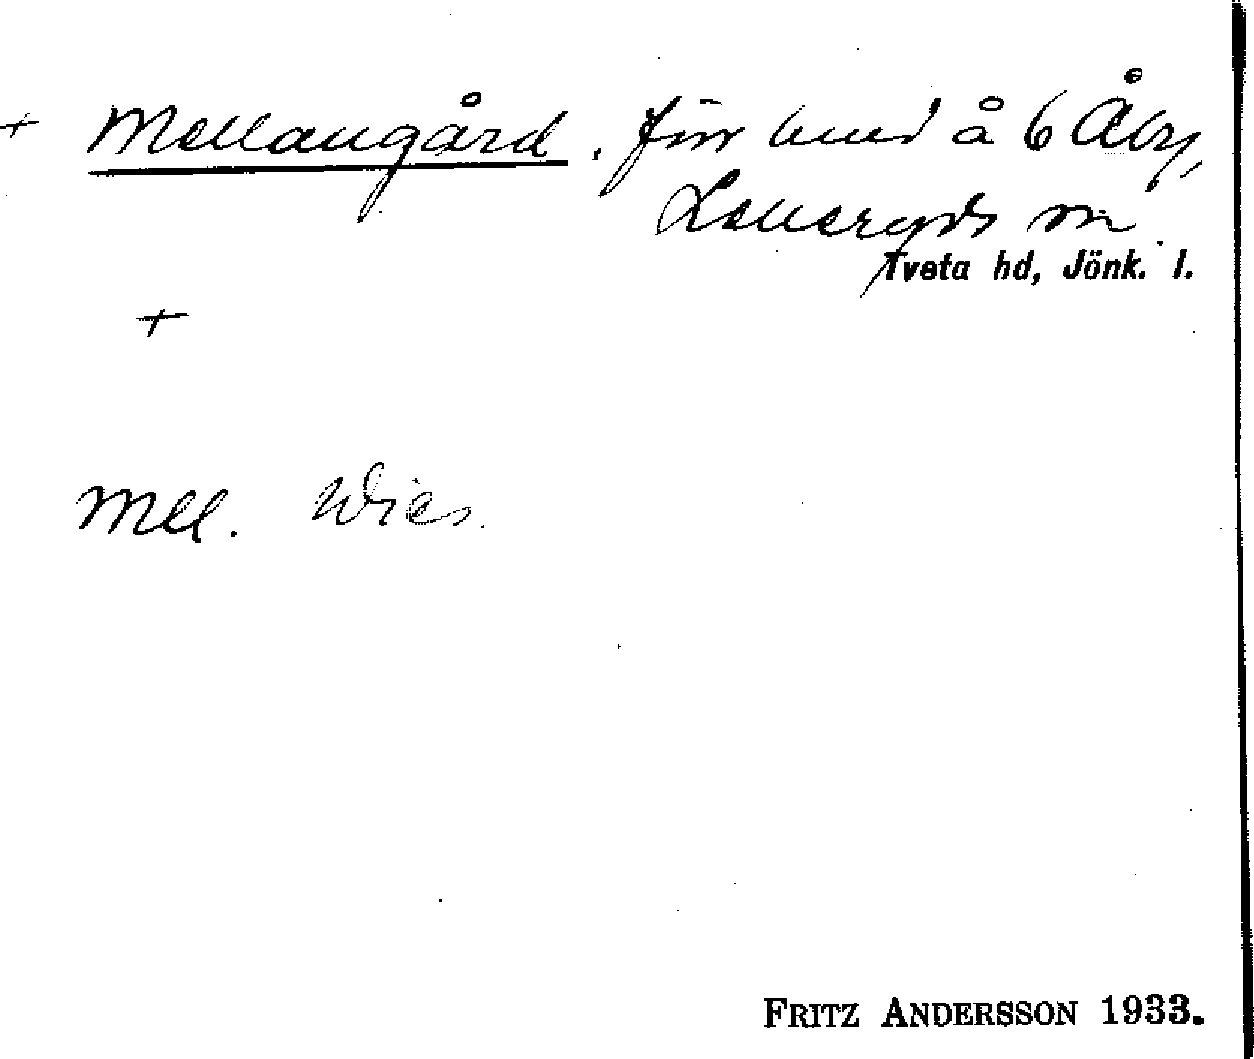 + Mellangård. för hus å 6 Åby,
Lekeryds sn
Tveta hd, Jönk. l.
+
Mell. Wies.
FRITZ ANDERSSON 1933.